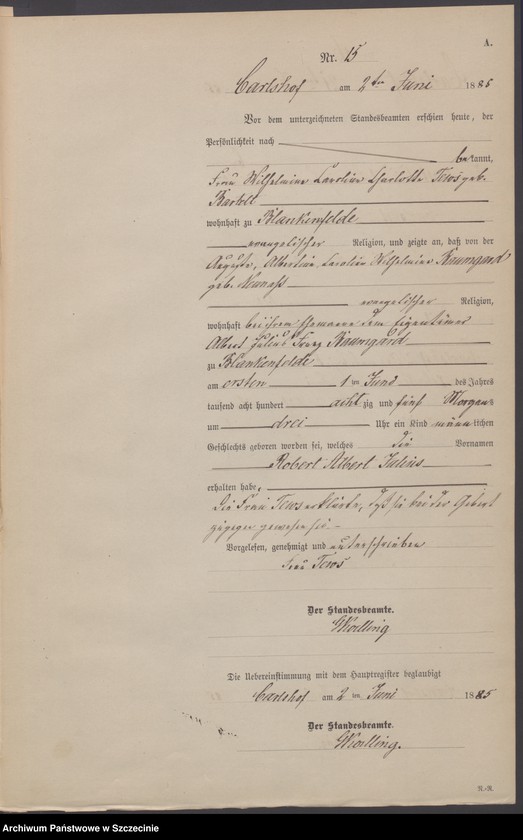 A.
Nr. 15
Carlshof am 2ten Juni 1885
Vor dem unterzeichneten Standesbeamten erschien heute, der
Persönlichkeit nach
bekannt,
Frau Wilhelmine Caroline Charlotte Tews geb.
wohnhaft zu Blankenfelde
evangelischer Religion, und zeigte an, daß von der
Auguste, Albertine Caroline Wilhelmine Baumgard
geb.
evangelischer Religion,
wohnhaft bei ihrem Ehemanne dem Eigentümer
Albert Julius Franz Baumgard
zu Blankenfelde
am ersten 1ten Juni des Jahres
tausend acht hundert achtzig und fünf Morgens
um drei Uhr ein Kind männlichen
Geschlechts geboren worden sei, welches die Vornamen
Robert Albert Julius
erhalten habe,
Die Frau Tews erklärte, daß sie bei der Geburt
zugegen gewesen sei –
Vorgelesen, genehmigt und unterschrieben
Frau Tews
Der Standesbeamte.
Die Uebereinstimmung mit dem Hauptregister beglaubigt
Carlshof am 2ten Juni 1885
Der Standesbeamte.
R.-R.
Archiwum Państwowe w Szczecinie